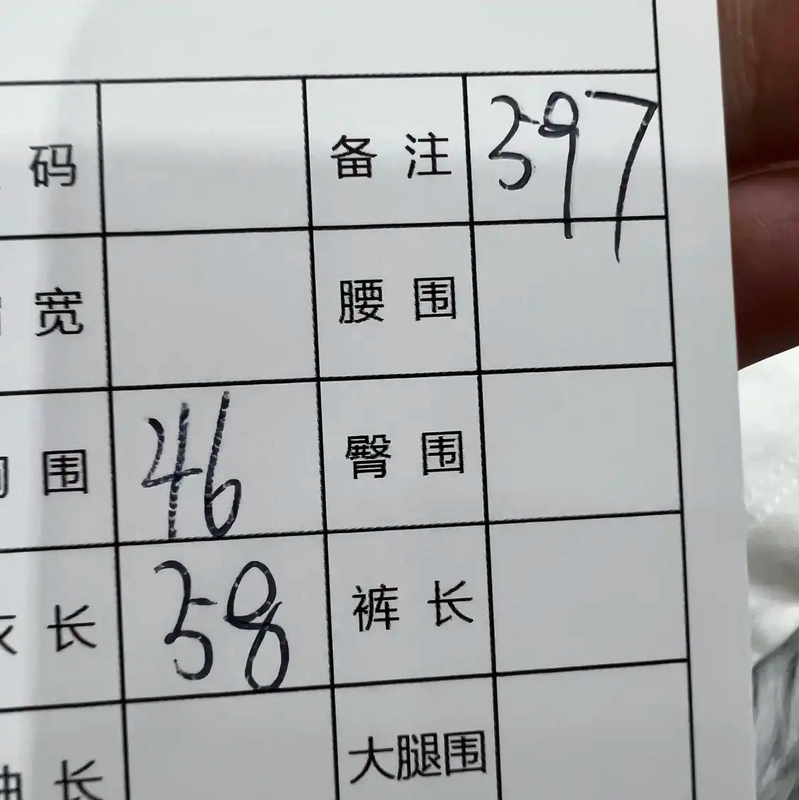 码 备注 397
宽 腰围
围 46 臀围
衣长 38 裤长
袖长 大腿围